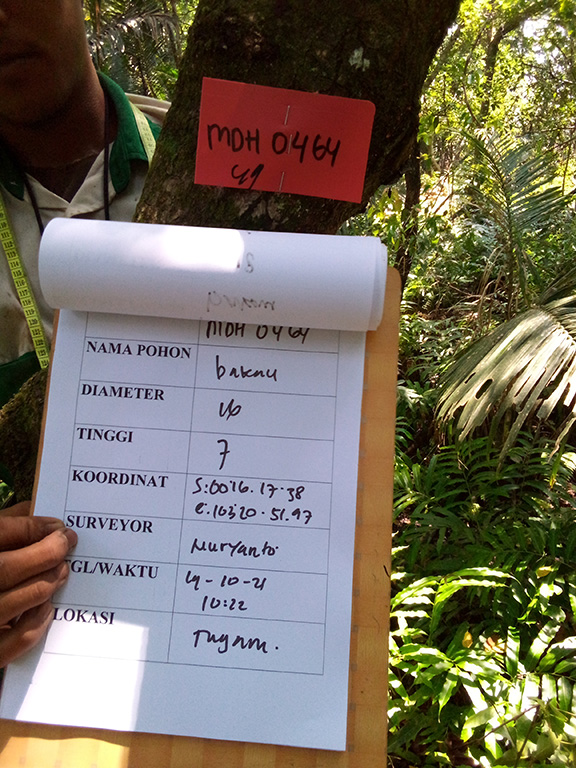 MDH 0464
49
MDH 0464
NAMA POHON bakau
DIAMETER 46
TINGGI 7
KOORDINAT S:00.16.17.38
E.103.20.51.97
SURVEYOR Nuryanto.
TGL/WAKTU 4-10-21
10:22
LOKASI